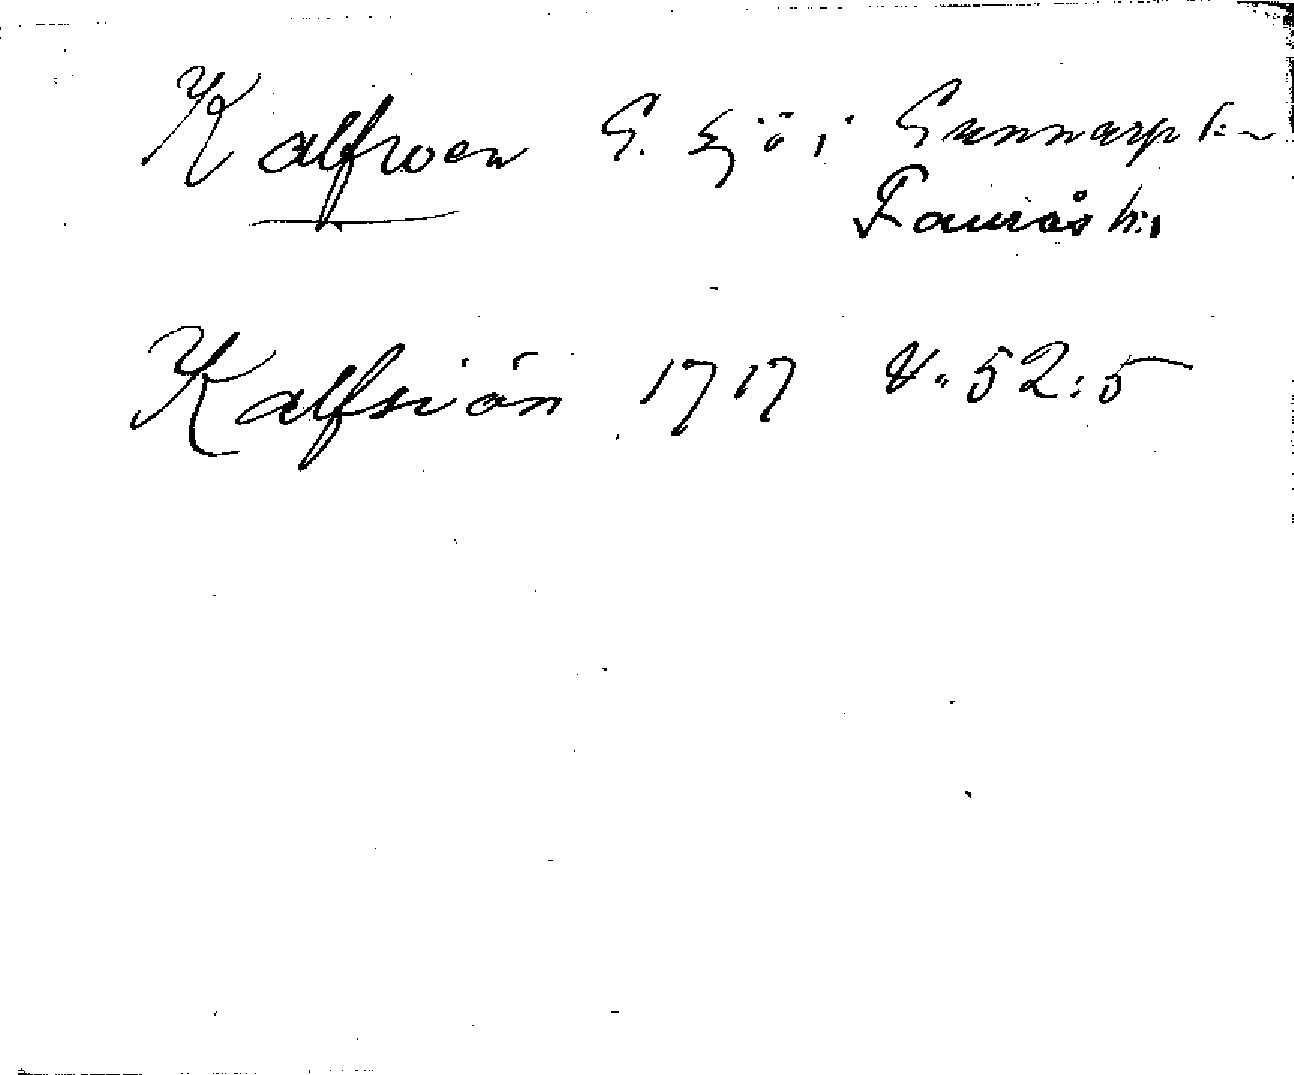 Kalfven G. sjö i Gunnarp sn
Faurås hd
Kalfsiön 1717 V. 52:5